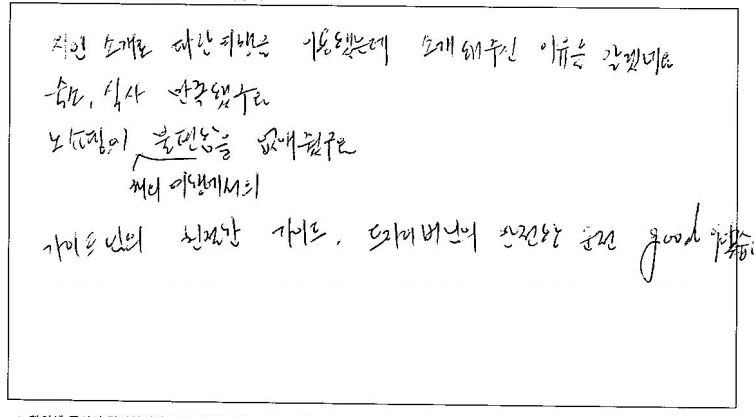 지인 소개로 다한여행을 이용했는데 소개해주신 이유를 알겠네요
숙소, 식사 만족했구요
노쇼핑이 불편함을 없애줬구요
해외 여행에서의
가이드님의 친절한 가이드, 드라이버님의 안전한 운전 good